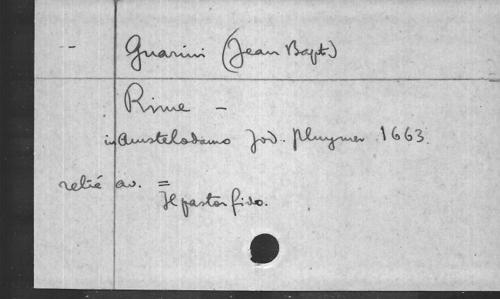 - Guarini (Jean Bapt.)
Rime -
in Amstelodamo Jod. Pluymer 1663.
relié av. =
Il pastor fido.